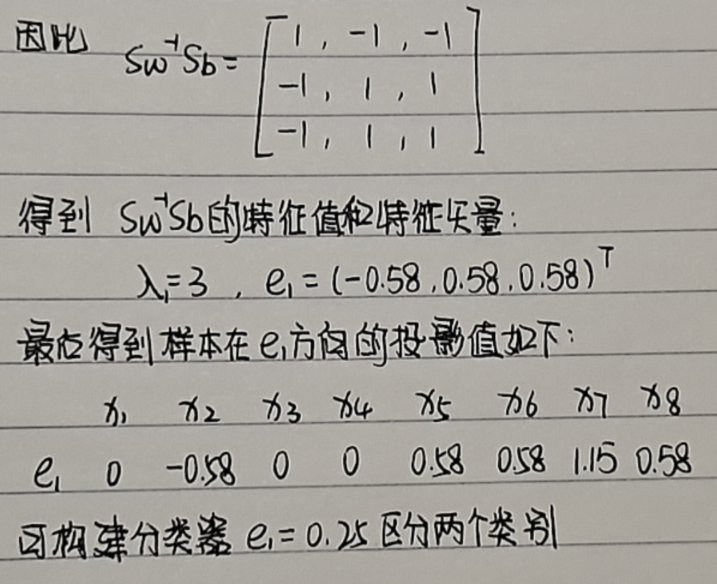 因此 Sw⁻¹Sb = [ 1 , -1 , -1
-1 , 1 , 1
-1 , 1 , 1 ]
得到 Sw⁻¹Sb的特征值和特征矢量:
λ₁=3 , e₁ = (-0.58, 0.58, 0.58)ᵀ
最后得到样本在e₁方向的投影值如下:
x₁ x₂ x₃ x₄ x₅ x₆ x₇ x₈
e₁ 0 -0.58 0 0 0.58 0.58 1.15 0.58
可构建分类器 e₁=0.25 区分两个类别